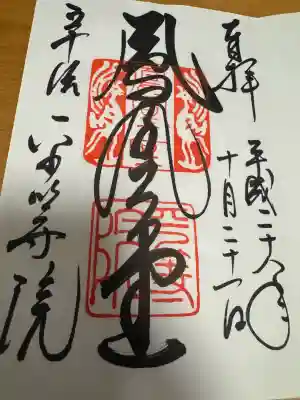 奉拝
平成二十六年
十月二十一日
鳳凰堂
宇治 平等院